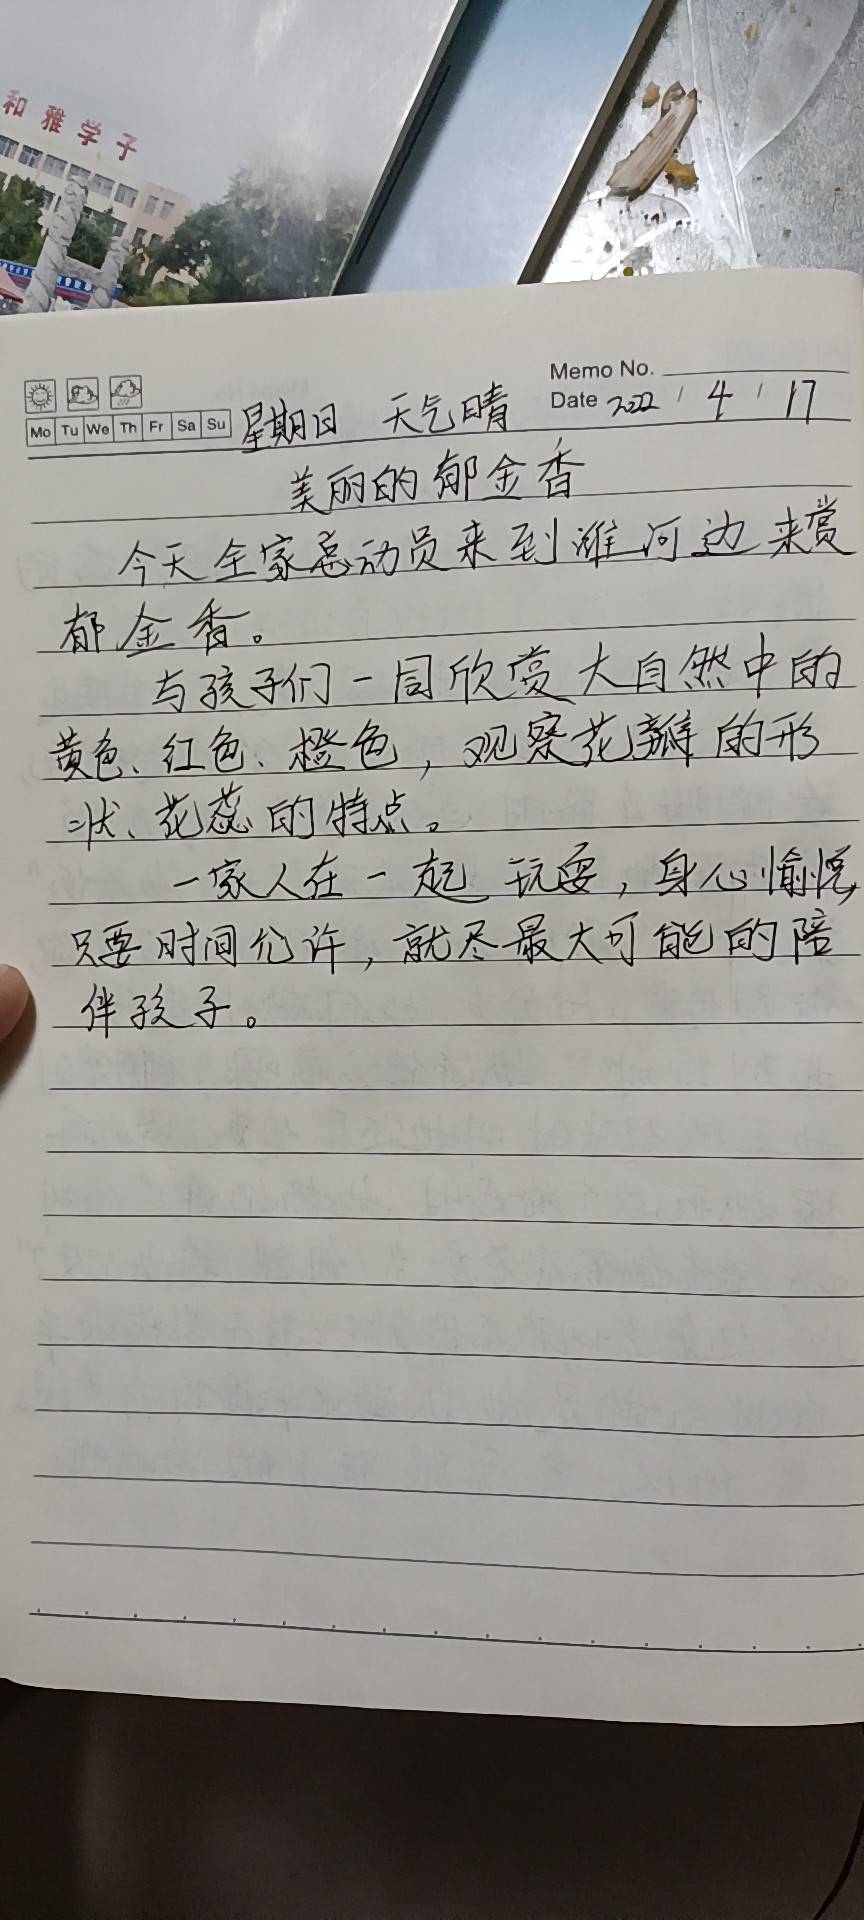 和雅学子
Memo No.
Mo Tu We Th Fr Sa Su 星期日 天气晴 Date 2022 / 4 / 17
美丽的郁金香
今天全家总动员来到潍河边来赏
郁金香。
与孩子们一同欣赏大自然中的
黄色、红色、橙色，观察花瓣的形
状、花蕊的特点。
一家人在一起玩耍，身心愉悦，
只要时间允许，就尽最大可能的陪
伴孩子。